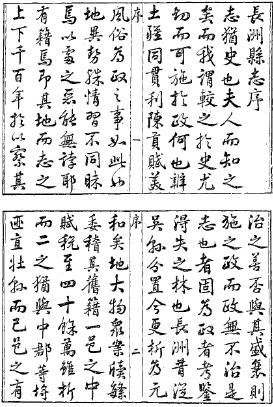 長洲縣志序
志猶史也夫人而知之
矣而我謂較之於史尤
切而可施於政何也辨
土壤同貫利陳貢賦美
序 一
風俗為政之事如此
地異勢殊情習不同昧
焉以處之惡能無誖耶
有籍焉即其地而志之
上下千百年於以察其
治之善否與其盛衰則
施之政而無不治是
志也者固為政者考鑒
得失之林也長洲昔從
吳縣分置今更析為元
序 二
和矣地大物眾案牘
委稽其舊籍一邑之中
賦稅至四十餘萬雖析
而二之猶與中郡等將
直壯縣而已邑之有